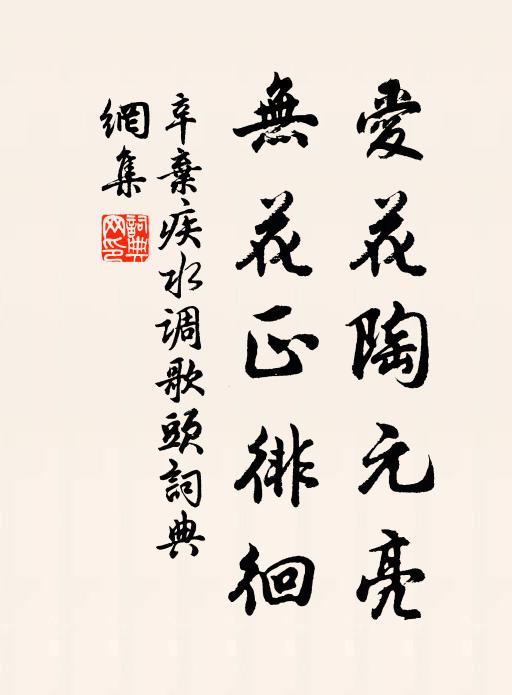 愛花陶元亮
無花正徘徊
辛棄疾水调歌頭詞典
網集
詞典網印